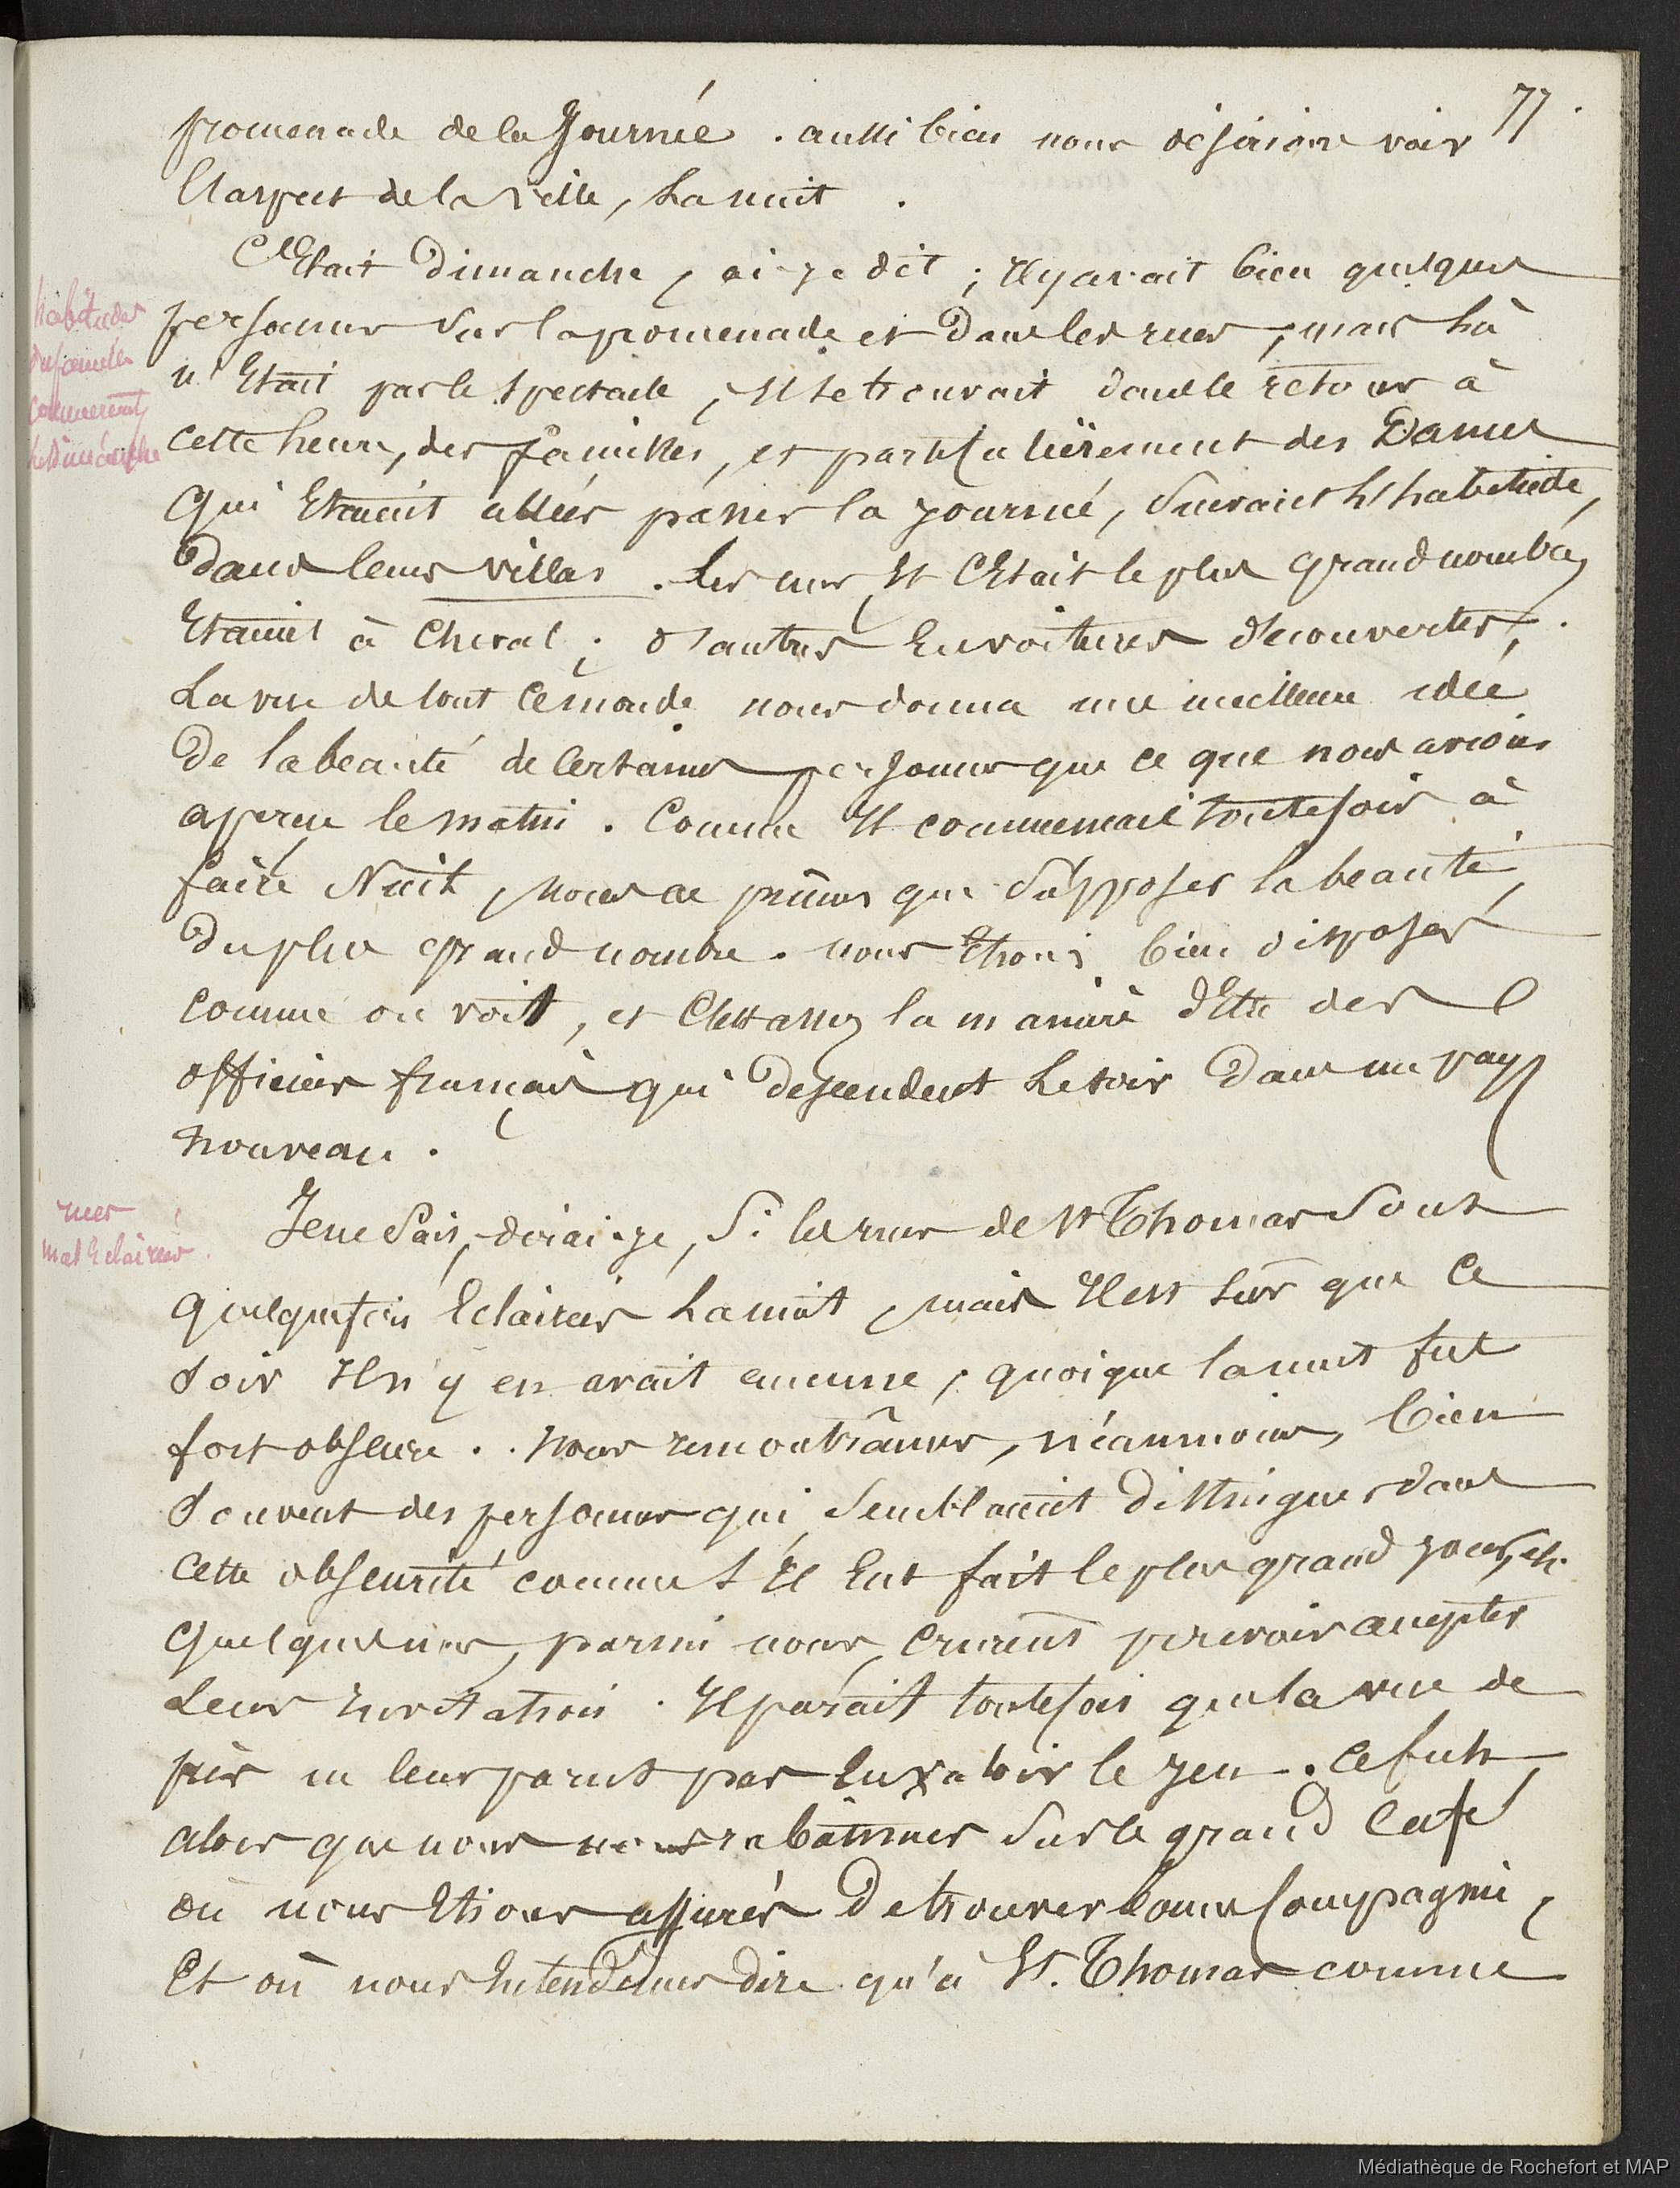 77.
promenade de la Journée. aussi bien nous désirions voir
l'aspect de la ville, la nuit.
C'Etait Dimanche, ai-je dit; Il y avait bien quelques
personnes sur la promenade et dans les rues, mais là
n'Etait pas le spectacle, Il se trouvait dans le retour à
cette heure, des familles, et particulièrement des Dames
qui Etaient allées passer la journée, suivant l'habitude,
Dans leurs villas. Les unes, Et C'Etait le plus grand nombre,
Etaient à Cheval; d'autres En voitures découvertes;
La vue de tout ce monde nous donna une meilleure idée
De la beauté de certaines personnes que ce que nous avions
aperçu le matin. Comme Il commençait toutefois à
faire Nuit, nous ne pûmes que supposer la beauté
Du plus grand nombre. nous Etions bien disposés
comme on voit, et C'Est assez la manière d'Etre des
officiers français qui descendent Le soir Dans un pays
nouveau.
Je ne sais, dirai-je, si les rues de St Thomas sont
quelquefois Eclairées La nuit, mais Il est sûr que ce
soir Il n'y en avait aucune, quoique la nuit fut
fort obscure.. Nous rencontrâmes, néanmoins, bien
souvent des personnes qui semblaient distinguer dans
cette obscurité comme s'Il Eut fait le plus grand jour, et
quelques uns, parmi nous, crurent pouvoir accepter
Leur Invitation. Il parait toutefois que la vue de
près ne leur parut pas En valoir le jeu. Ce fut
alors que nous nous rabattîmes sur le grand Café
où nous Etions assurés De trouver bonne Compagnie,
Et où nous Entendîmes dire qu'à St. Thomas comme
habitudes
des familles
commerçants
le Dimanche
rues
mal Eclairées.
Médiathèque de Rochefort et MAP